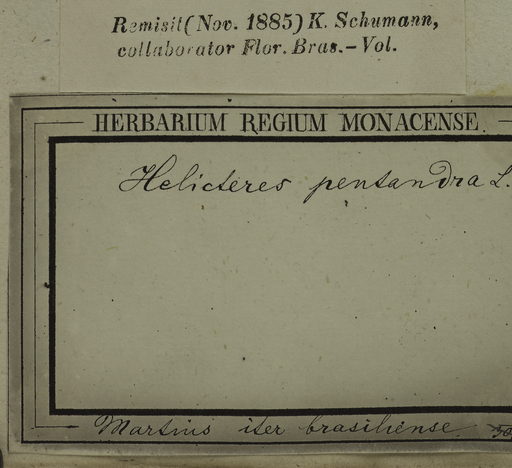 Remisit (Nov. 1885) K. Schumann,
collaborator Flor. Bras. – Vol.
HERBARIUM REGIUM MONACENSE.
Helicteres pentandra L.
Martius iter brasiliense